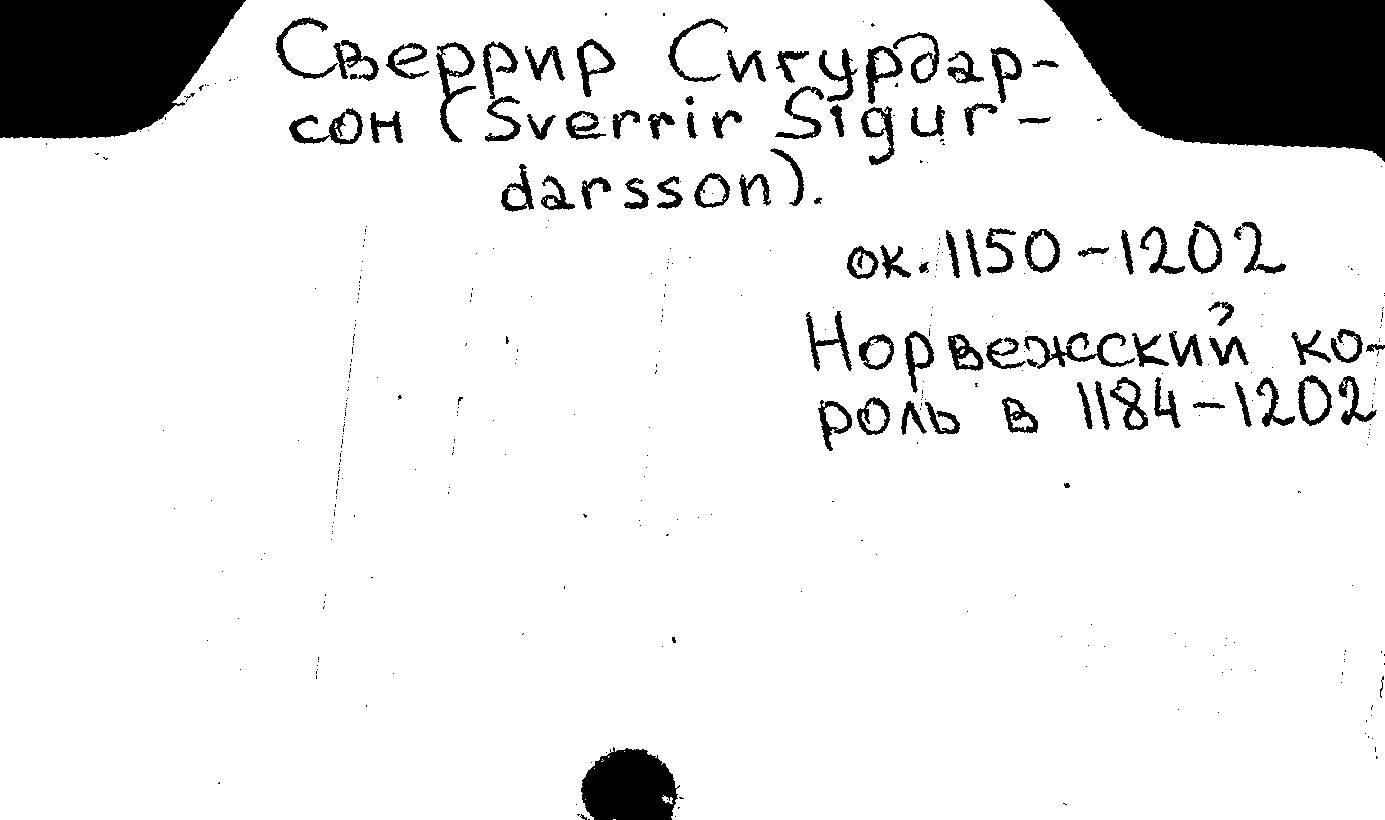 Сверрир Сигурдар-
сон (Sverrir Sigur-
darsson).
ок. 1150-1202
Норвежский ко-
роль в 1184-1202